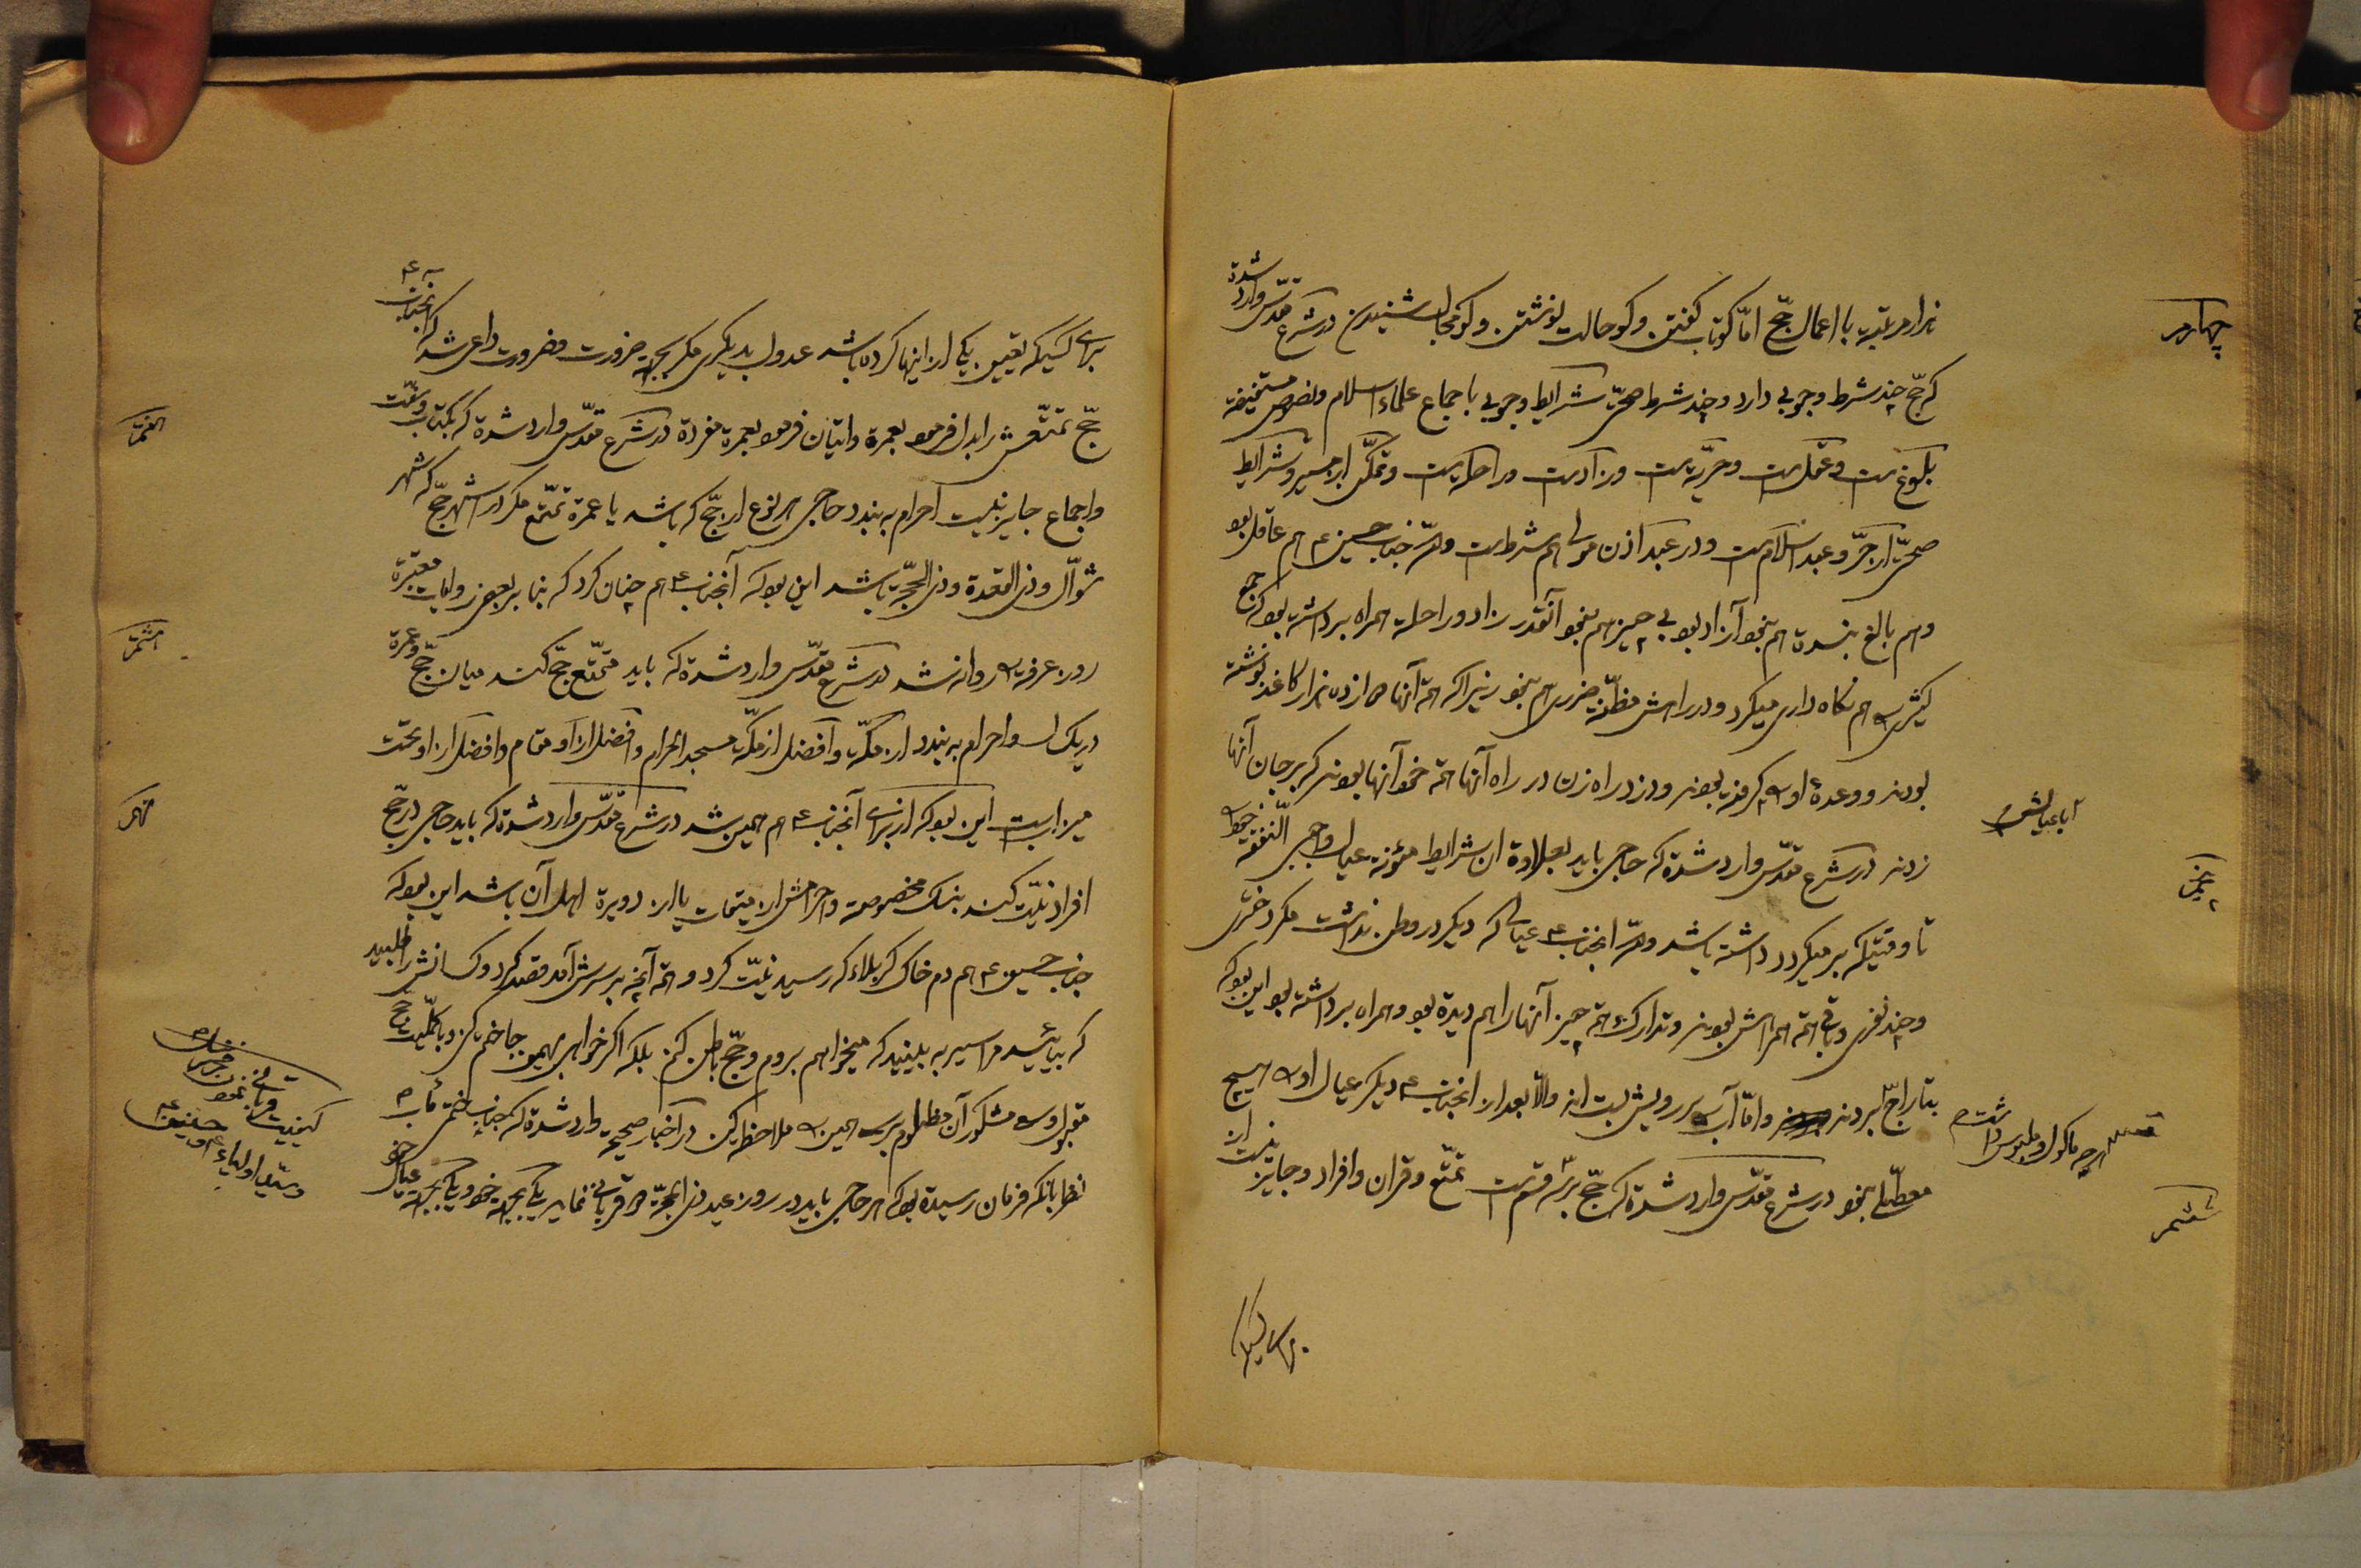 چهارم
ندارد رتبه با اعمال حجّ امّا کو تاب گفتن و کو حالت نوشتن و کو مجال شنیدن در شرع مقدّس وارد شده
که حجّ چند شرط وجوبی دارد و چند شرط صحّتی شرایط وجوبی باجماع علماء اسلام و نصوص مستفیضه
بلوغ است و عقل است و حرّیه است و زاد است و راحله است و تمکّن از مسیر و شرایط
صحّتی از حرّ و عبد اسلام است و در عبد اذن مولی هم شرط است و امّا جناب حسین ع هم عاقل بود
و هم بالغ بنده هم نبود آزاد بود بی چیز هم نبود آنقدر زاد و راحله همراه برداشته بود که جمع
کثیری هم نگاه داری میکرد و در راهش مظنّه ضرری هم نبود زیرا که همه آنها دوازده هزار کاغذ نوشته
بودند و وعدۀ او گرفته بودند و دزد و راه زن در راه آنها همه خود آنها بودند که بر جان آنها
آبا عیالش
پنجم
زدند در شرع مقدّس وارد شده که حاجی باید بعلاوه آن شرایط مؤنه عیال واجبی النّفقه خود
تا وقتیکه بر میگردد داشته باشد و امّا آنجناب ع عیالی که دیگر در وطن نداشت مگر دختری
و چند نفری و باقی همه همراهش بودند و تدارک همه چیز آنها را هم دیده بود و همراه برداشته بود این بود که
هرچه ماکول و ملبوس داشت
بتاراج بردند و امّا آب بر رویش بستند و الّا بعد از آنجناب ع دیگر عیال او هیچ
ششم
معطّلی نبود در شرع مقدّس وارد شده که حجّ بر سه قسم است تمتّع و قران و افراد و جایز نیست از
برای کسیکه
برای کسیکه تعیین یکی از اینها کرده باشد عدول بدیگری مگر بجهة ضرورت و ضرورت داعی شد که آنجناب ع
هفتم
حجّ تمتّعش را بدل فرمود بعمره و اتیان فرمود بعمره مفرده در شرع مقدّس وارد شده که بکتاب و سنّت
و اجماع جایز نیست احرام به بندد حاجی هر نوع از حجّ که باشد یا عمره تمتّع مگر در اشهر حجّ که شهر
شوّال و ذی القعدة و ذی الحجّه باشد این بود که آنجناب ع هم چنان کرد که بنا بر بعضی روایات معتبره
هشتم
روز عرفه روانه شد در شرع مقدّس وارد شده که باید متمتّع حجّ کند میان حجّ و عمره
در یک سال و احرام به بندد از مکّه و افضل از مکّه مسجد الحرام و افضل از او مقام و افضل از او تحت
نهم
میزابست این بود که از برای آنجناب ع هم همین شد در شرع مقدّس وارد شده که باید حاجی در حجّ
افراد نیّت کند بنسک مخصوصه و احرامش از میقات یا از دویره اهل آن باشد این بود که
جناب حسین ع هم دم خاک کربلاء که رسید نیّت کرد و همه آنچه بر سرش آمد قصد کرد و کسانش را طلبید
که بیائید مرا سیر به بینید که میخواهم بروم و حجّ باطن کنم بلکه اگر خواهی بهمین جا ختم کن و با کلّیت حجّ
مقبول و مشکور آن مظلوم برس همین ملاحظه کن در اخبار صحیحه وارد شده که جناب ختمی مآب ص
نظر بآنکه فرمان رسیده بود که هر حاجی باید در روز عید ذی الحجّه دو قربانی نماید یکی بجهة خود و یکی بجهة عیال خود
کیفیت قربانی نمودن